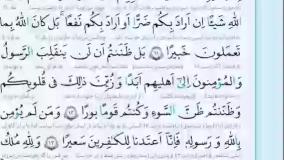 اللَّهِ شَيْئًا إِنْ أَرَادَ بِكُمْ ضَرًّا أَوْ أَرَادَ بِكُمْ نَفْعًا بَلْ كَانَ اللَّهُ بِمَا
تَعْمَلُونَ خَبِيرًا ﴿١١﴾ بَلْ ظَنَنْتُمْ أَنْ لَنْ يَنْقَلِبَ الرَّسُولُ
وَالْمُؤْمِنُونَ إِلَىٰ أَهْلِيهِمْ أَبَدًا وَزُيِّنَ ذَٰلِكَ فِي قُلُوبِكُمْ
وَظَنَنْتُمْ ظَنَّ السَّوْءِ وَكُنْتُمْ قَوْمًا بُورًا ﴿١٢﴾ وَمَنْ لَمْ يُؤْمِنْ
بِاللَّهِ وَرَسُولِهِ فَإِنَّا أَعْتَدْنَا لِلْكَافِرِينَ سَعِيرًا ﴿١٣﴾ وَلِلَّهِ مُلْكُ